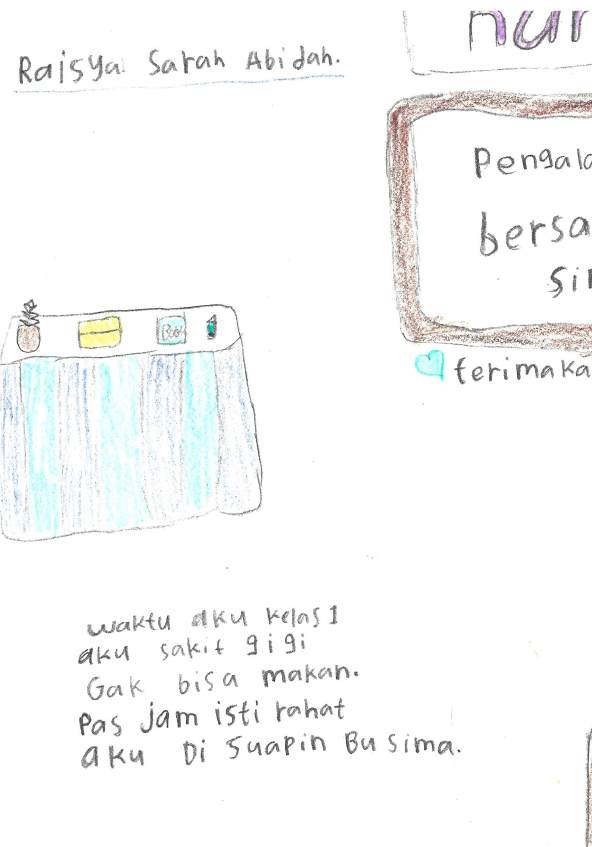 Raisya Sarah Abidah.
Pengala
bersa
terimaka
waktu aku kelas 1
aku sakit gigi
Gak bisa makan.
Pas jam isti rahat
aku Di Suapin Bu Sima.